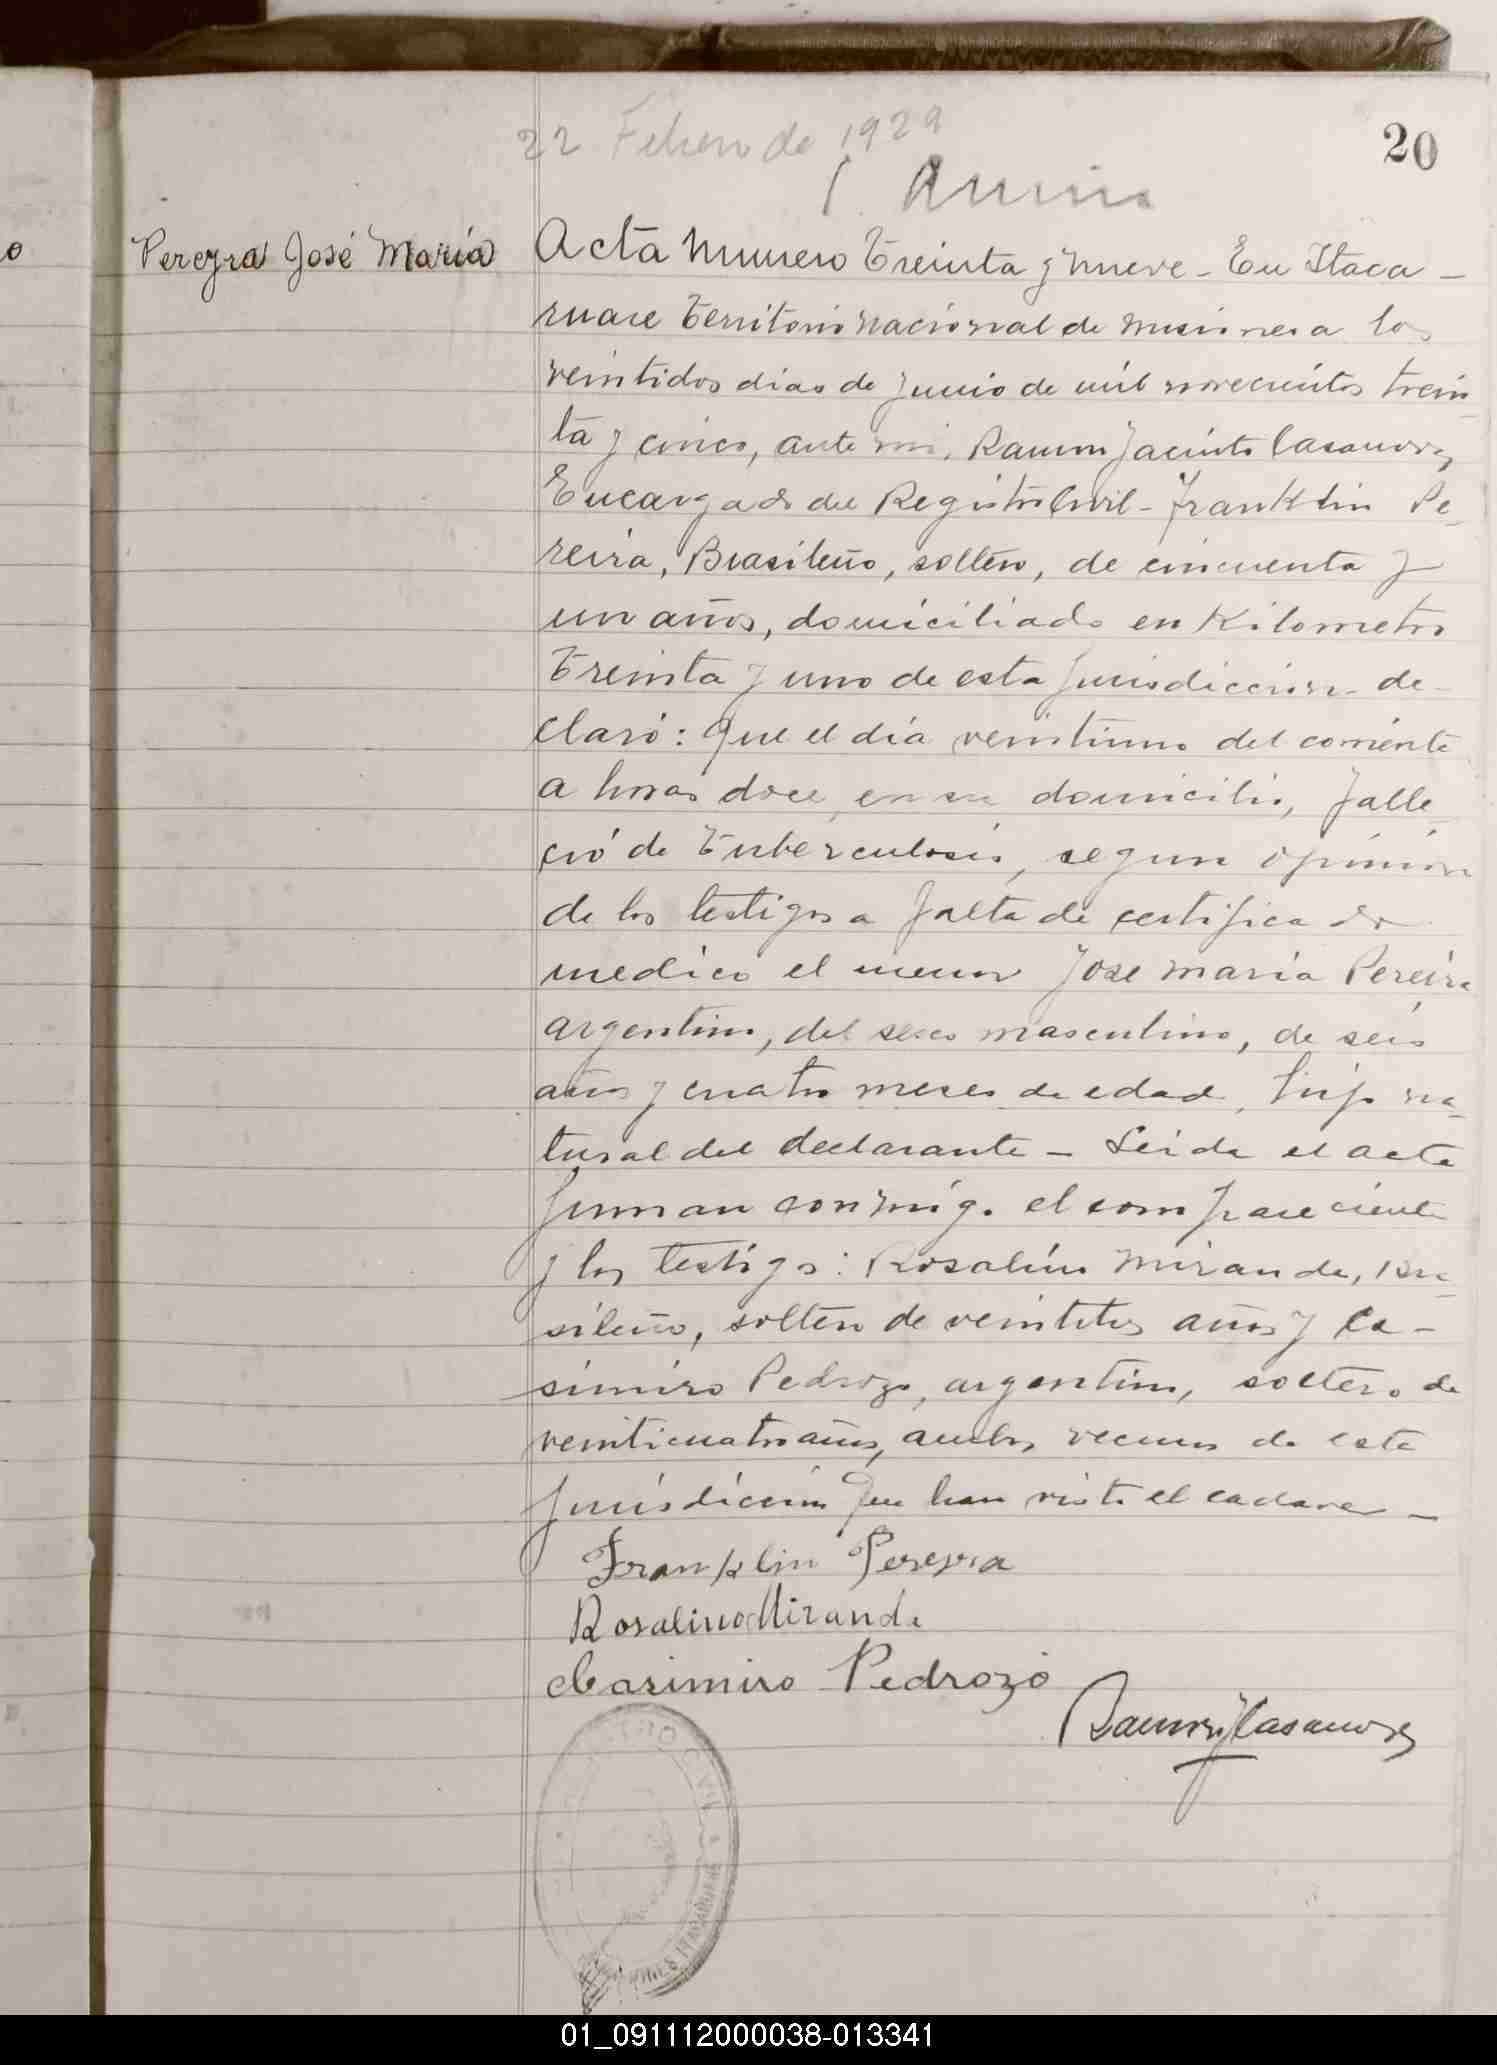 22 Febrero de 1929
20
Pereyra José María
Acta Numero Treinta y nueve - En Itaca-
ruare Territorio nacional de Misiones a los
veintidos dias de Junio de mil novecientos trein-
ta y cinco, ante mi, Ramon Jacinto Casanova
Encargado del Registro Civil - Franklin Pe-
reira, Brasileño, soltero, de cincuenta y
un años, domiciliado en Kilometro
Treinta y uno de esta jurisdiccion de-
claró: Que el día veintiuno del corriente
a horas doce, en su domicilio, falle-
ció de Tuberculosis, segun opinion
de los testigos a falta de certificado
medico el menor Jose Maria Pereira
argentino, del sexo masculino, de seis
años y cuatro meses de edad, hijo na-
tural del declarante - Leida el acta
firman conmigo el compareciente
y los testigos: Rosalino Miranda, bra-
sileño, soltero de veintitres años y Ca-
simiro Pedrozo, argentino, soltero de
veinticuatro años, ambos vecinos de esta
jurisdiccion que han visto el cadaver -
Franklin Pereyra
Rosalino Miranda
Casimiro Pedrozo
Ramon J Casanova
01_091112000038-013341